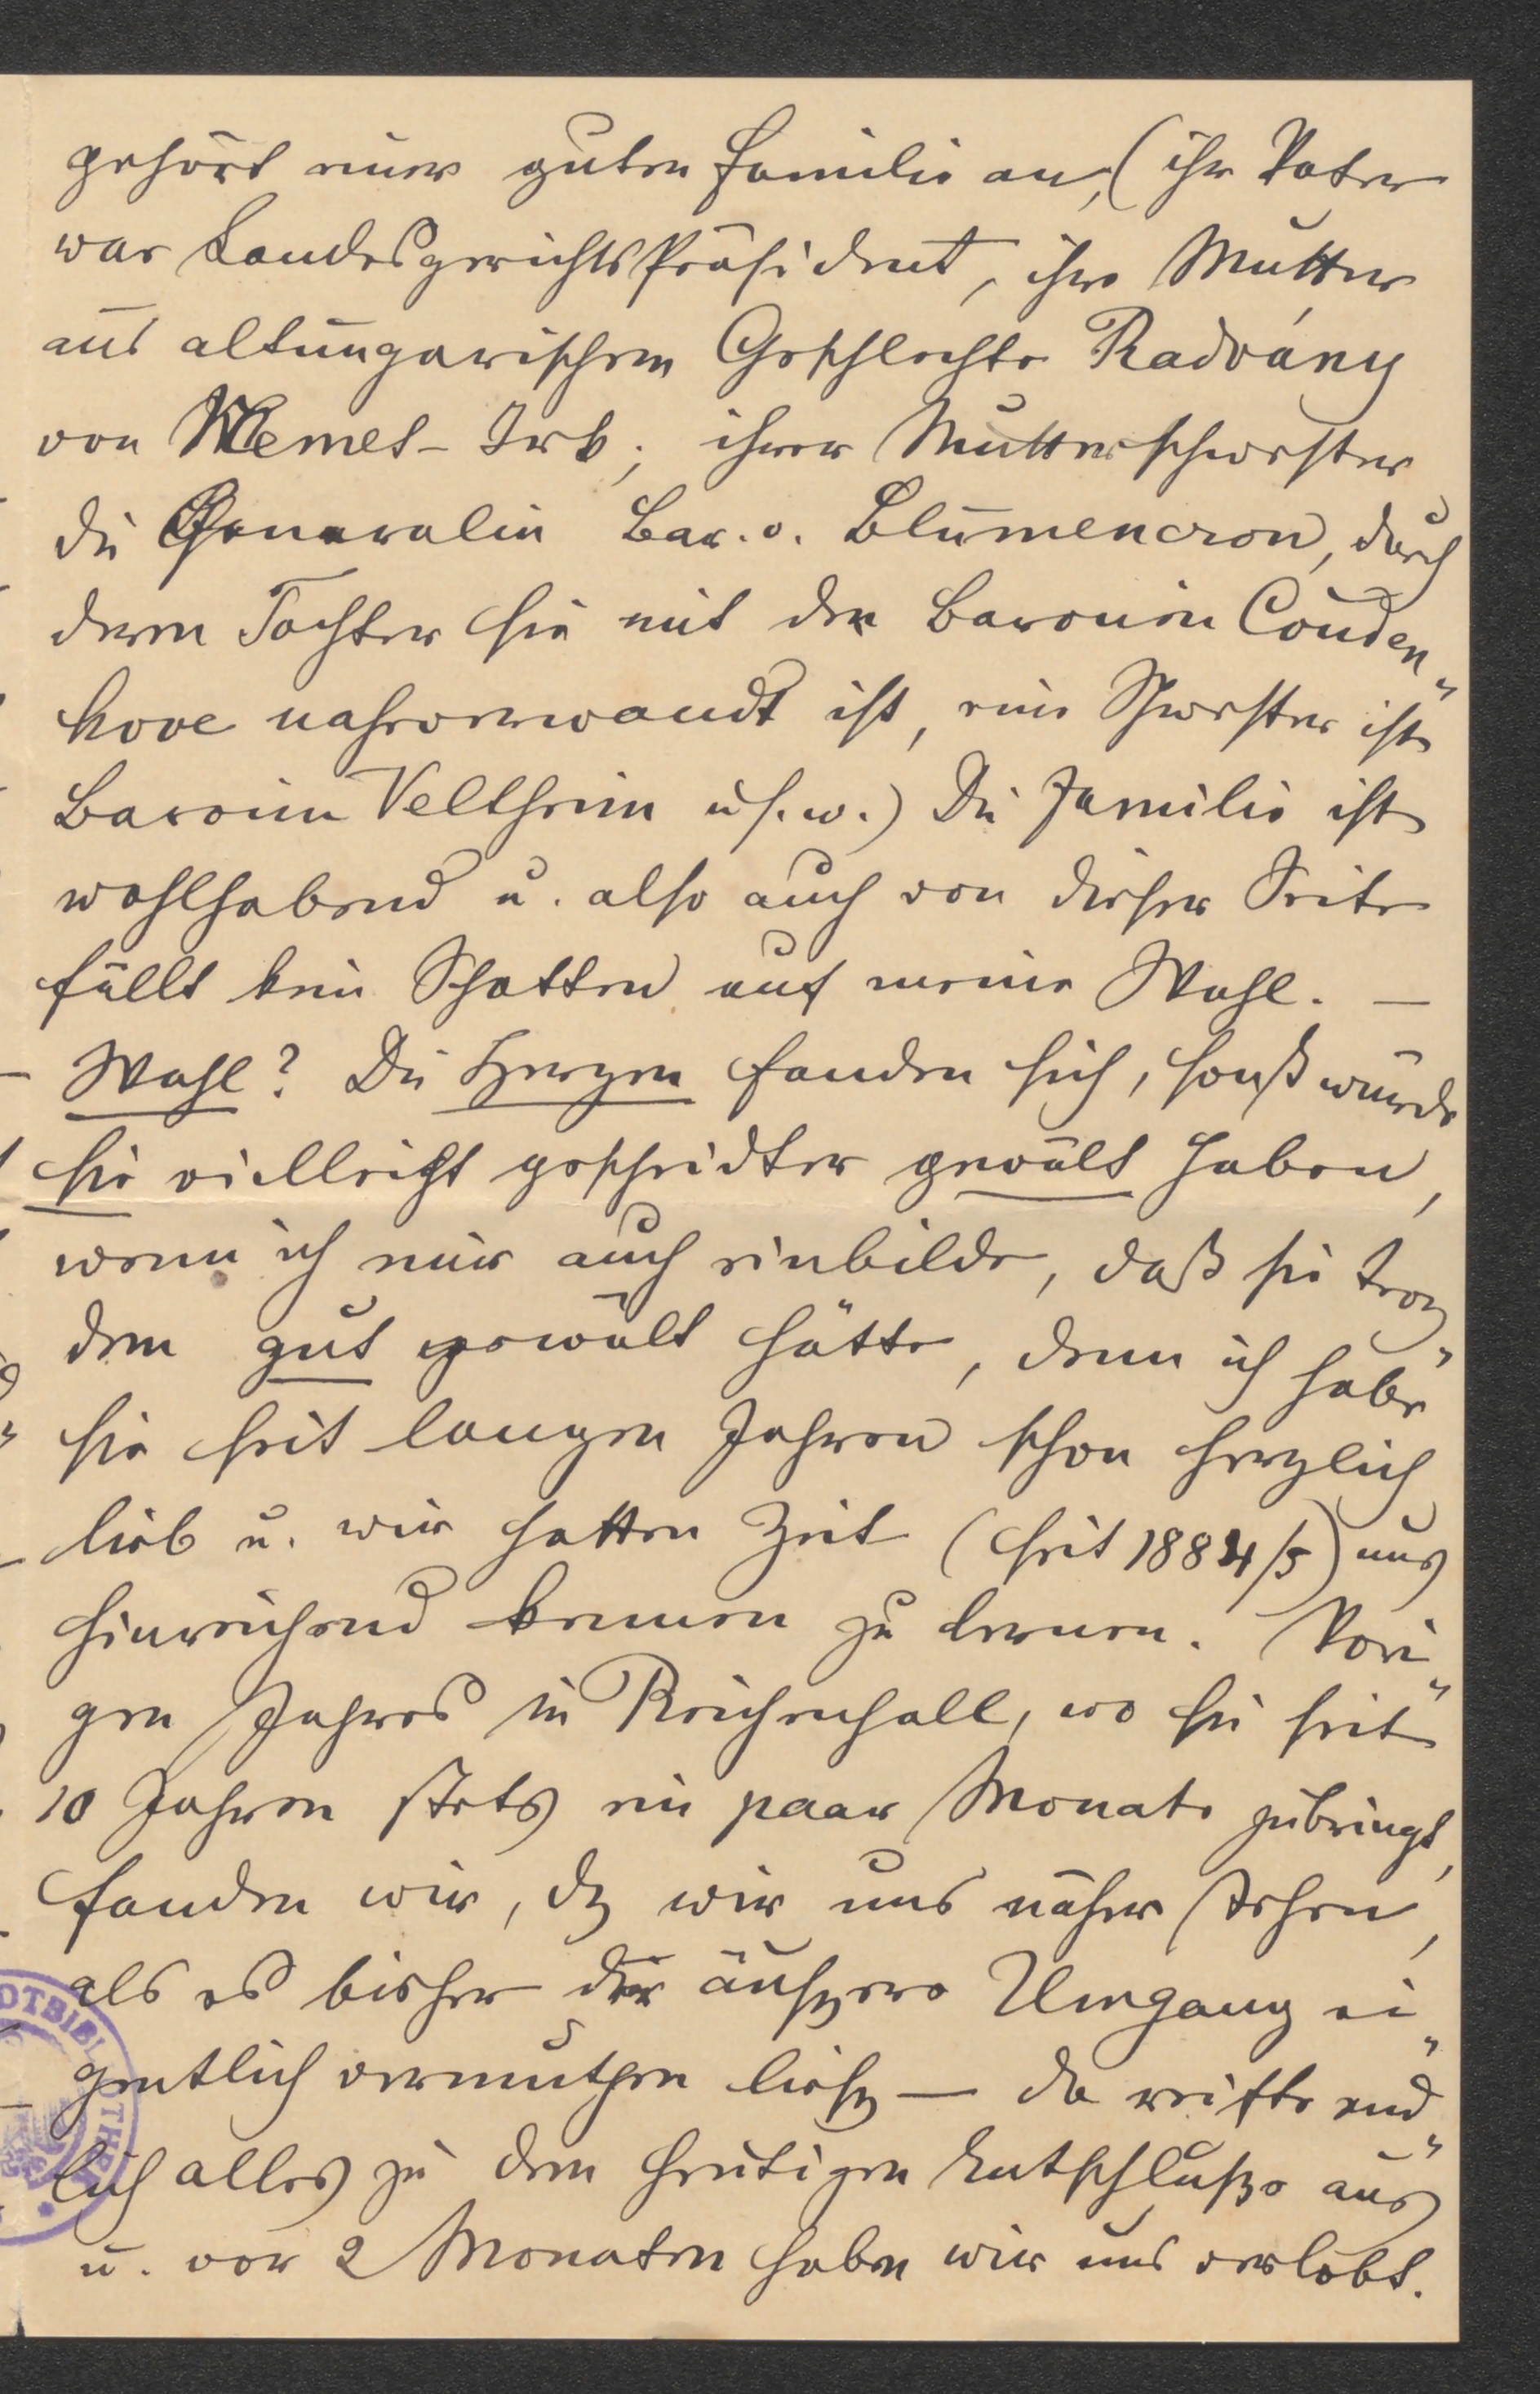 gehört einer guten Familie an, (ihr Vater
war Landesgerichts Präsident, ihre Mutter
aus altungarischem Geschlechte Radvány
von Nemes-Irb; ihrer Mutterschwester
die Generalin Bar. v. Blumencron, durch
deren Tochter sie mit der Baronin Couden„
hove nahverwandt ist, eine Schwester ist
Baronin Veltheim u s. w.) Die Familie ist
wohlhabend u. also auch von dieser Seite
fällt kein Schatten auf meine Wahl. —
Wahl? Die Herzen fanden sich, sonst würde
sie vielleicht gescheidter gewält haben,
wenn ich mir auch einbilde, daß sie troz„
dem gut gewält hätte, denn ich habe
sie seit langen Jahren schon herzlich
lieb u. wir hatten Zeit (seit 1884/5) uns
hinreichend kennen zu lernen. Vori„
gen Jahres in Reichenhall, wo sie seit
10 Jahren stets ein paar Monate zubringt,
fanden wir, dz wir uns näher stehen,
als es bisher der äußere Umgang ei„
gentlich vermuthen ließ — da reifte end„
lich alles zu dem heutigen Entschluße aus
u. vor 2 Monaten haben wir uns verlobt.